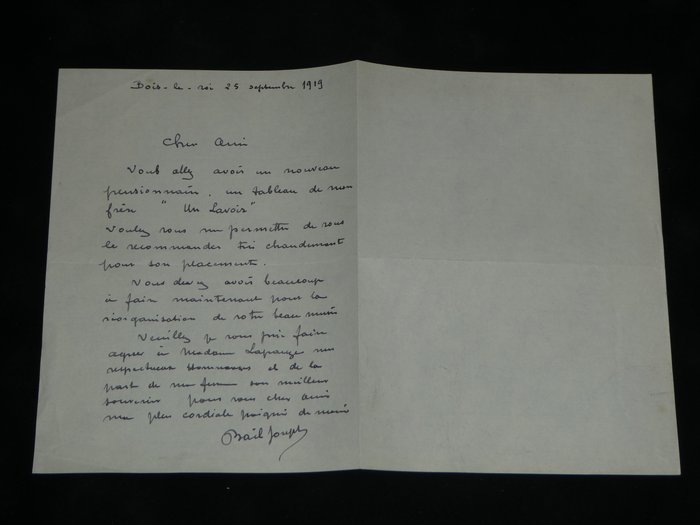 Bois-le-roi 25 septembre 1919
Cher ami
Vous allez avoir un nouveau
pensionnaire, un tableau de mon
frère "Un Lavoir"
Voulez vous me permettre de vous
le recommander très chaudement
pour son placement.
Vous devez avoir beaucoup
à faire maintenant pour la
réorganisation de votre beau musée
Veuillez je vous prie faire
agréer à Madame Lapauze mes
respectueux hommages et de la
part de ma femme son meilleur
souvenir pour vous cher ami
ma plus cordiale poignée de main
Bail Joseph